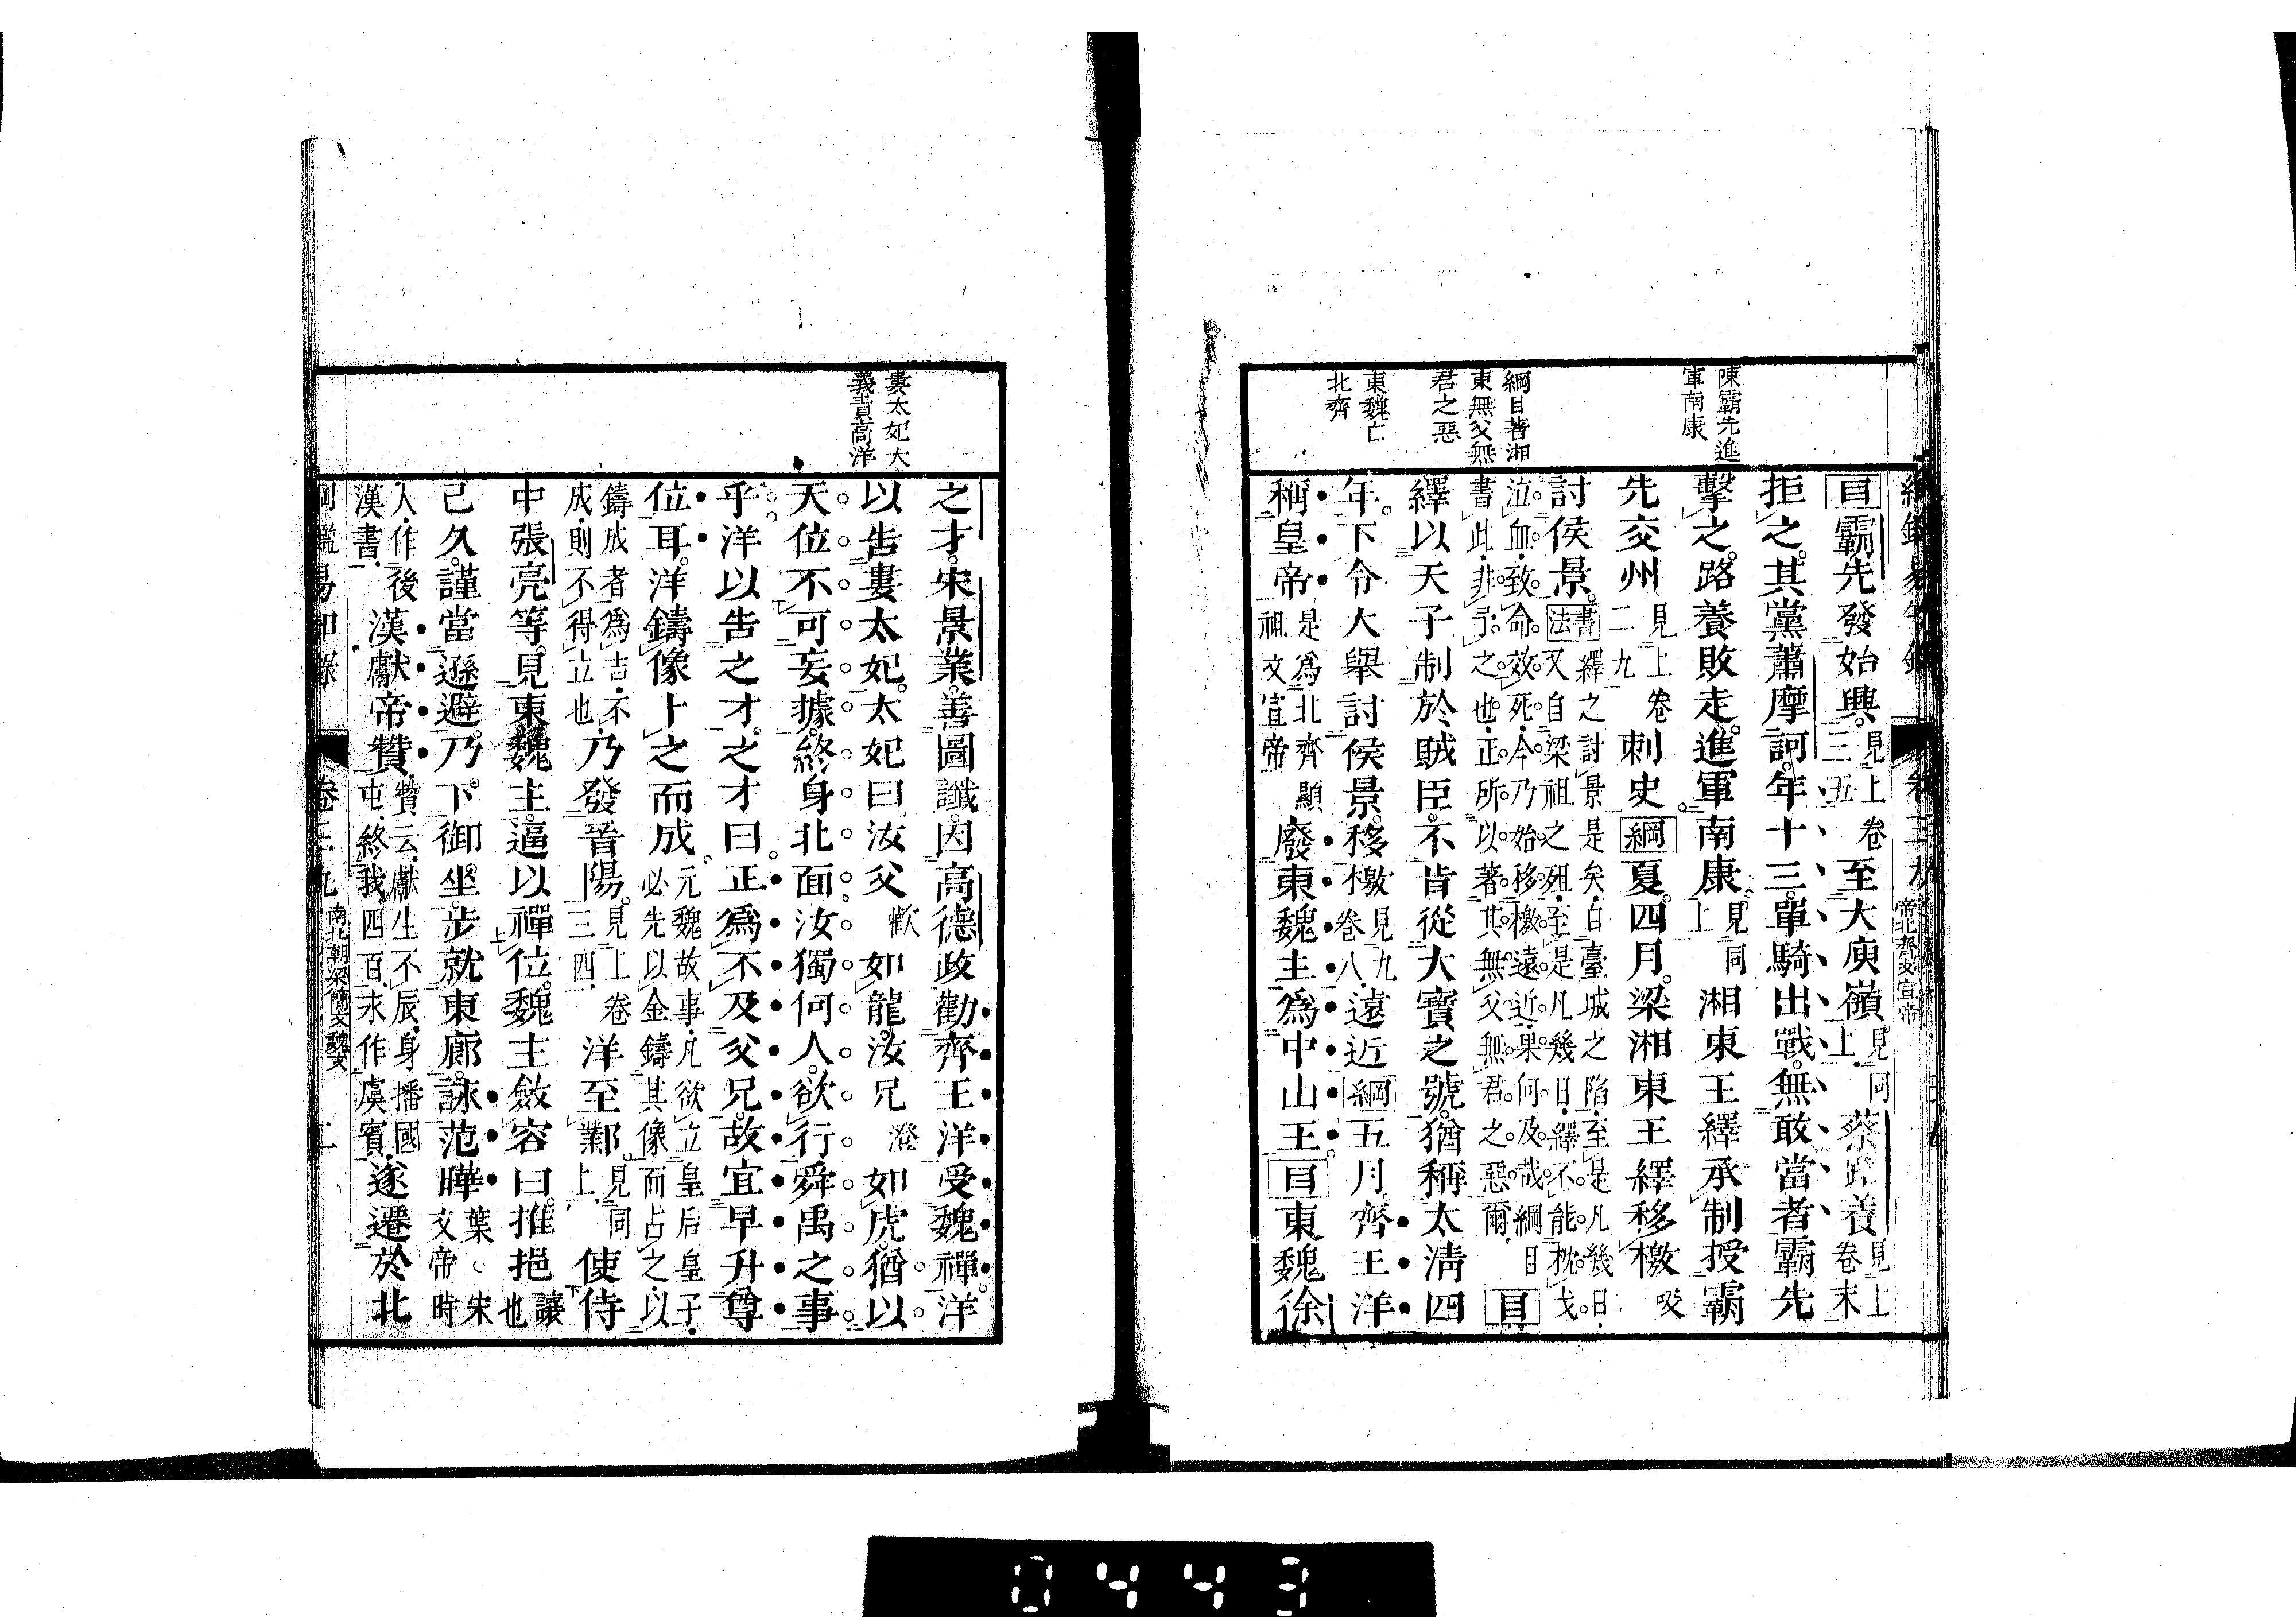 陳霸先進
軍南康
綱目著湘
東無父無
君之惡
東魏亡
北齊
目霸先發始興見上卷三五至大庾嶺見同上蔡路養見上卷末
拒之其黨蕭摩訶年十三單騎出戰無敢當者霸先
擊之路養敗走進軍南康見同上湘東王繹承制授霸
先交州見上卷二九刺史綱夏四月梁湘東王繹移檄
討侯景書法繹之討景是矣自臺城之陷至是凡幾日又自梁祖之殂至是凡幾日繹不能枕戈
泣血致命效死今乃始移檄遠近果何及哉綱目書此非予之也正所以著其無父無君之惡爾目
繹以天子制於賊臣不肯從大寶之號猶稱太清四
年下令大舉討侯景移檄見九卷八遠近綱五月齊王洋
稱皇帝是為北齊顯祖文宣帝廢東魏主爲中山王目東魏徐
婁太妃大
義責高洋
之才宋景業善圖讖因高德政勸齊王洋受魏禪洋
以告婁太妃太妃曰汝父歡如龍汝兄澄如虎猶以
天位不可妄據終身北面汝獨何人欲行舜禹之事
乎洋以告之才之才曰正爲不及父兄故宜早升尊
位耳洋鑄像卜之而成元魏故事凡欲立皇后皇子必先以金鑄其像而占之以
鑄成者爲吉不成則不得立也乃發晉陽見上卷三四洋至鄴見同上使侍
中張亮等見東魏主逼以禪位魏主斂容曰推挹讓也
已久謹當遜避乃下御坐步就東廊詠范曄葉宋文帝時
人作後漢書漢獻帝贊贊云獻生不辰身播國屯終我四百永作虞賓遂遷於北
南北朝梁簡文魏文 二